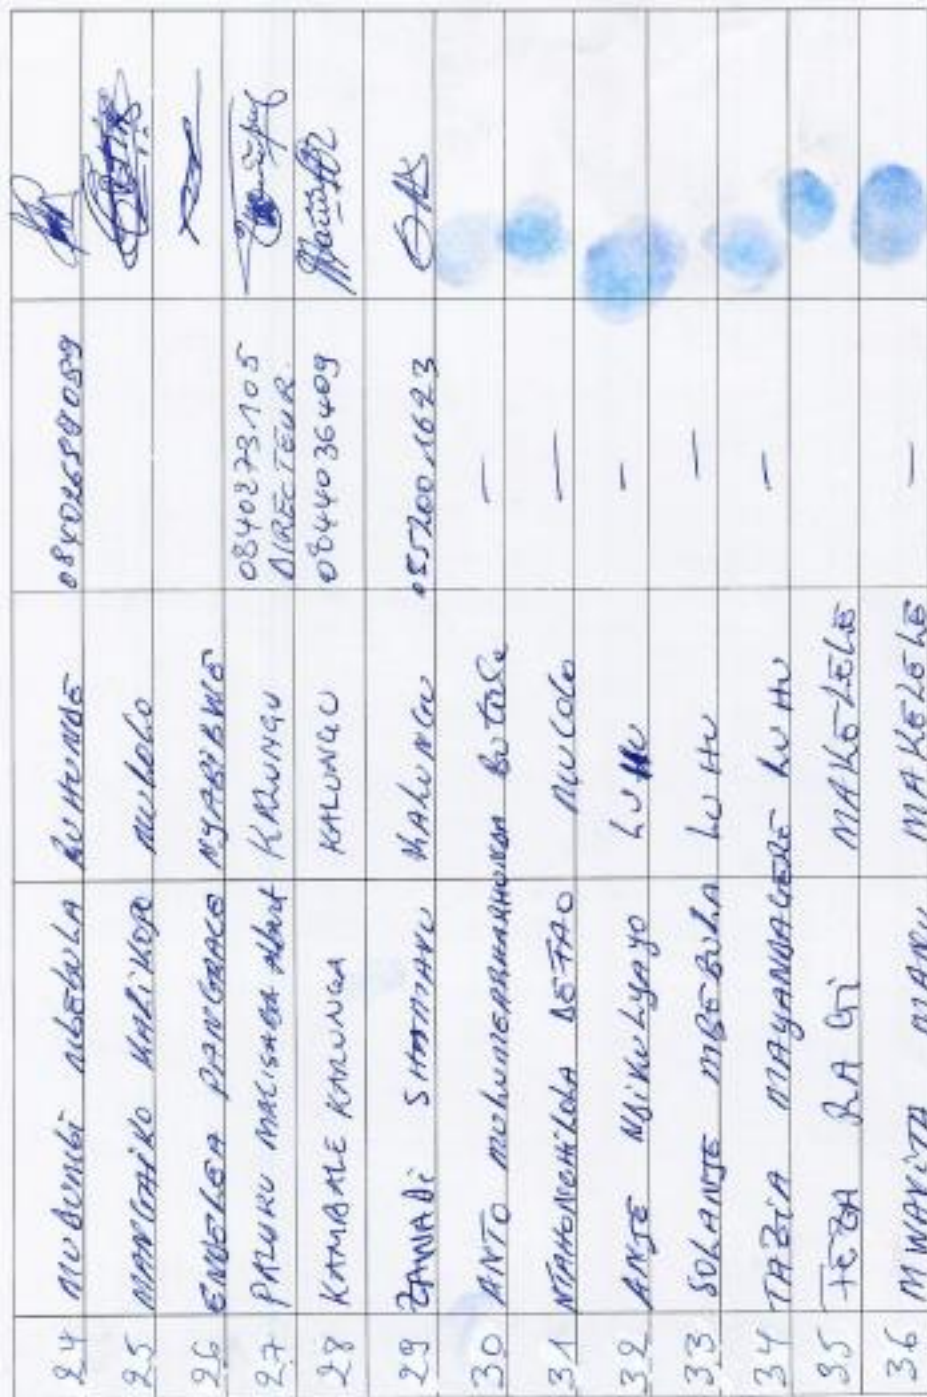 24 MUBUNGI NGEBULA BUHUNDE 08402689059
25 MANGAIKO KALIKOPO MULOLO
26 ENGELEA PANGRACE NYABIBWE
27 PALUKU MALISABA Albert KALUNGU 0840273105
DIRECTEUR
28 KAMBALE KALUNGA KALUNGU 0844036409
29 ZAWADI SHAMAVU KALUNGU 0857001623
30 ANTO BUTALE –
31 NTAHONGHILOLA DEFAO MULOLO –
32 ANJE NDIKULYAYO LUHU –
33 SOLANJE MBEBULA LUHU –
34 TABIA MAYANDAGERE LUHU –
35 FEZA RAGI MAKELELE
36 MWAVITA MANU MAKELELE –